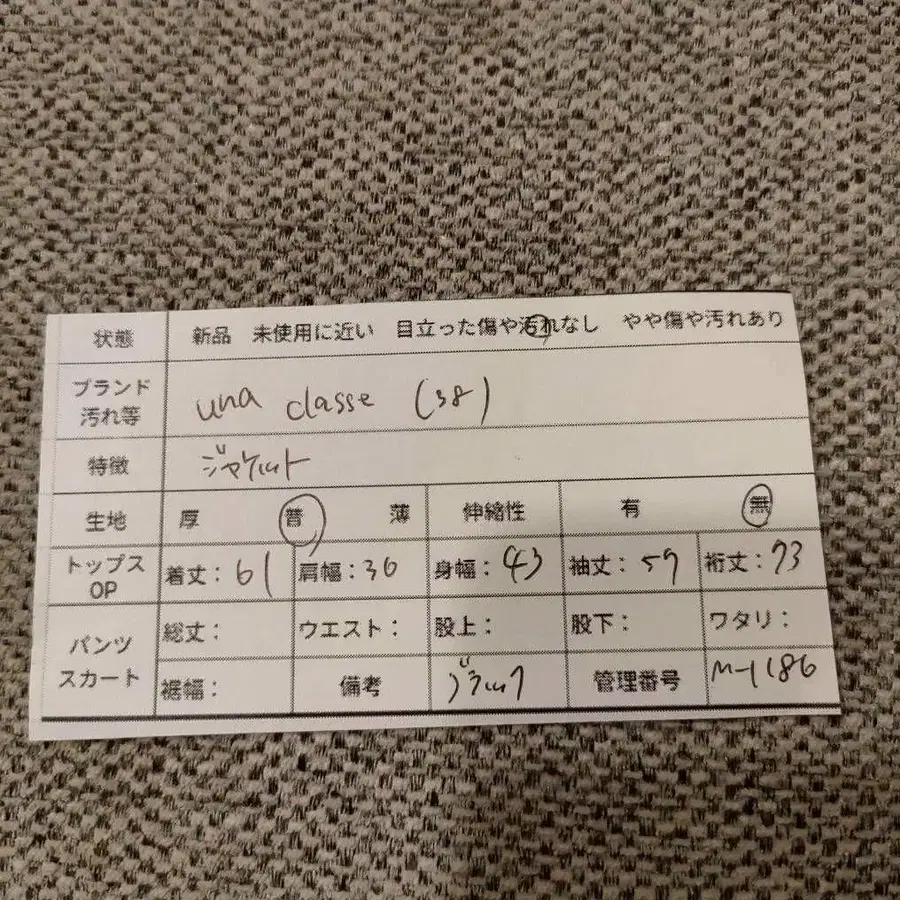 状態 新品 未使用に近い 目立った傷や汚れなし やや傷や汚れあり
ブランド
汚れ等 una classe (38)
特徴 ジャケット
生地 厚 普 薄 伸縮性 有 無
トップス
OP 着丈：61 肩幅：36 身幅：43 袖丈：57 裄丈：73
パンツ
スカート 総丈： ウエスト： 股上： 股下： ワタリ：
裾幅： 備考 ブラック 管理番号 M-1186